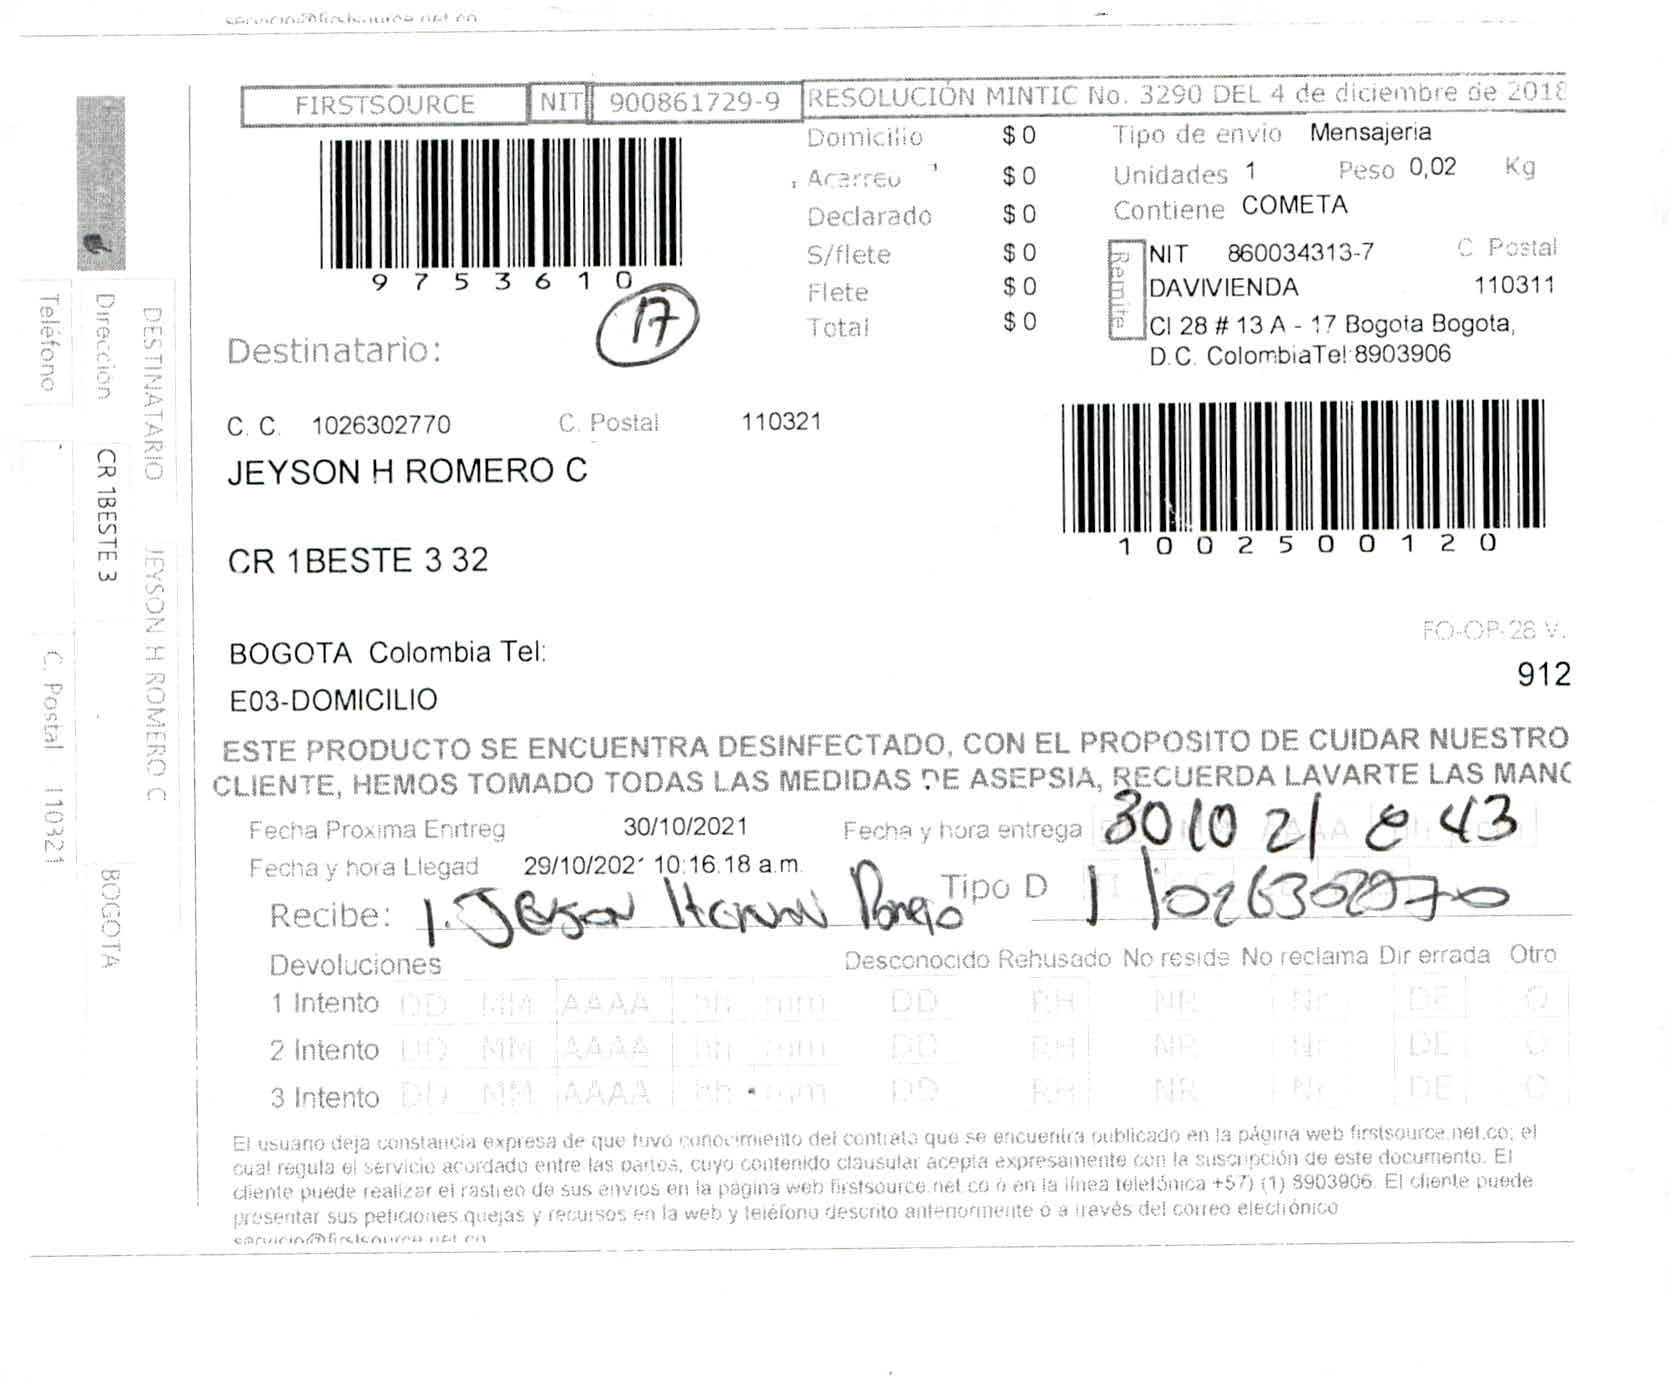 FIRSTSOURCE NIT 900861729-9 RESOLUCIÓN MINTIC No. 3290 DEL 4 de diciembre de 2018
9753610
17
Domicilio $ 0
Acarreo $ 0
Declarado $ 0
S/flete $ 0
Flete $ 0
Total $ 0
Tipo de envio Mensajeria
Unidades 1 Peso 0,02 Kg
Contiene COMETA
Remite
NIT 860034313-7 C Postal
DAVIVIENDA 110311
Cl 28 # 13 A - 17 Bogota Bogota,
D.C. ColombiaTel:8903906
Destinatario:
C. C. 1026302770 C. Postal 110321
JEYSON H ROMERO C
CR 1BESTE 3 32
1002500120
BOGOTA Colombia Tel:
E03-DOMICILIO
FO-OP-28 V.
912
ESTE PRODUCTO SE ENCUENTRA DESINFECTADO, CON EL PROPOSITO DE CUIDAR NUESTRO
CLIENTE, HEMOS TOMADO TODAS LAS MEDIDAS DE ASEPSIA, RECUERDA LAVARTE LAS MANO
Fecha Proxima Enrtreg 30/10/2021 Fecha y hora entrega 30 10 21 8 43
Fecha y hora Llegad 29/10/2021 10:16.18 a.m.
Recibe: 1. Jeyson Hernan Tipo D 1 1026302770
Devoluciones Desconocido Rehusado No reside No reclama Dir errada Otro
1 Intento DD MM AAAA hh mm DD RH NR Nr DE O
2 Intento DD MM AAAA hh mm DD RH NR Nr DE O
3 Intento DD MM AAAA hh mm DD RH NR Nr DE O
El usuario deja constancia expresa de que tuvo conocimiento del contrato que se encuentra publicado en la página web firstsource.net.co; el
cual regula el servicio acordado entre las partes, cuyo contenido clausular acepta expresamente con la suscripción de este documento. El
cliente puede realizar el rastreo de sus envios en la página web firstsource.net.co ó en la línea telefónica +57) (1) 8903906. El cliente puede
presentar sus peticiones quejas y recursos en la web y teléfono descrito anteriormente ó a través del correo electrónico
servicio@firstsource.net.co
DESTINATARIO JEYSON H ROMERO C
Dirección CR 1BESTE 3 BOGOTA
Teléfono C. Postal 110321